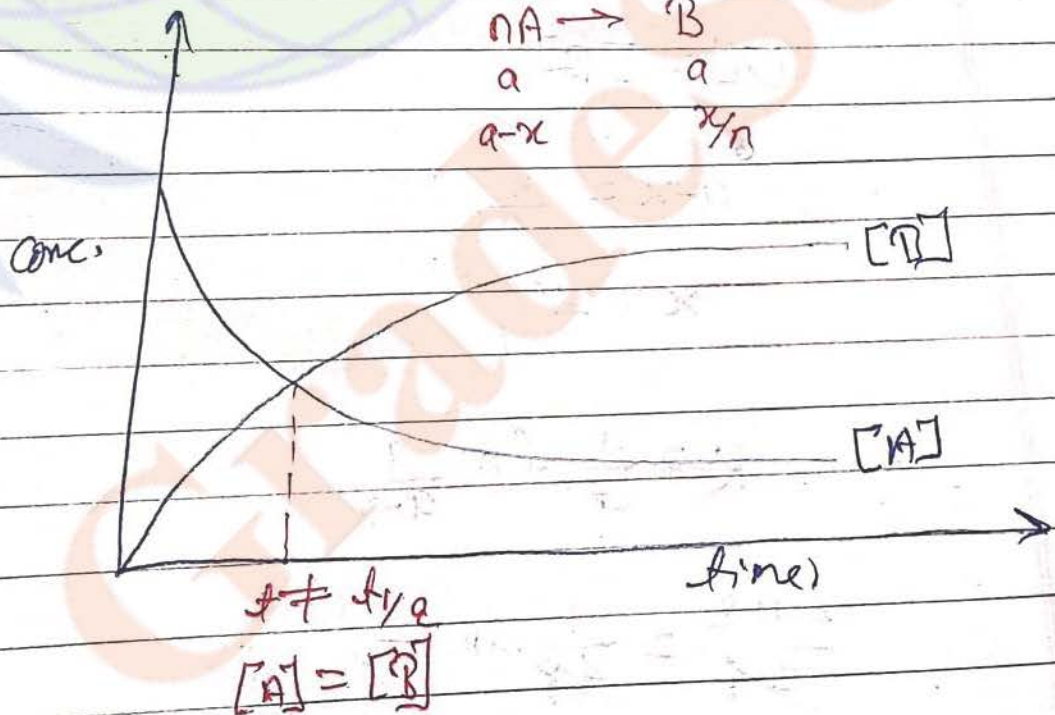 nA → B
a a
a-x x/n
conc.
[B]
[A]
time)
t ≠ t1/2
[A] = [B]
Grades